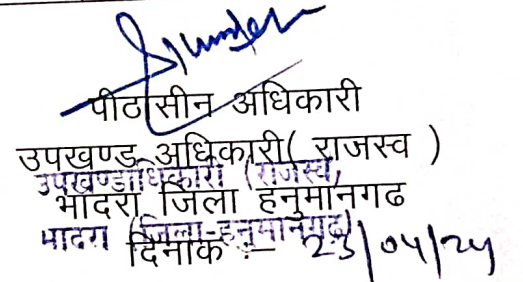 पीठासीन अधिकारी
उपखण्ड अधिकारी( राजस्व )
उपखण्डाधिकारी (राजस्व)
भादरा जिला हनुमानगढ
भादरा (जिला-हनुमानगढ़)
दिनांक :- 23/04/24